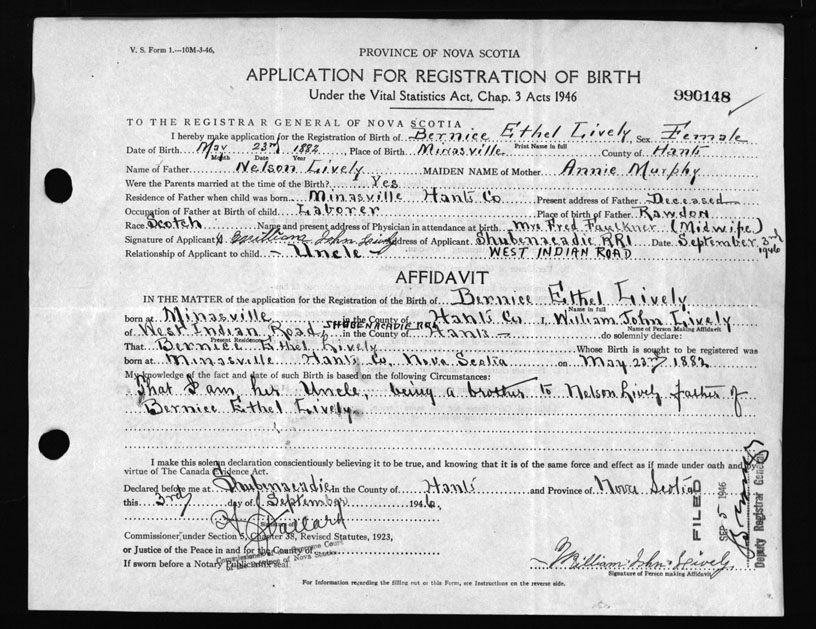 V. S. Form 1.—10M-3-46,
PROVINCE OF NOVA SCOTIA
APPLICATION FOR REGISTRATION OF BIRTH
Under the Vital Statistics Act, Chap. 3 Acts 1946
990148
TO THE REGISTRAR GENERAL OF NOVA SCOTIA
I hereby make application for the Registration of Birth of Bernice Ethel Lively Sex Female
Print Name in full
Date of Birth May 23rd 1882 Place of Birth Minasville County of Hants
Month Date Year
Name of Father Nelson Lively MAIDEN NAME of Mother Annie Murphy
Were the Parents married at the time of the Birth? Yes
Residence of Father when child was born Minasville Hants Co Present address of Father Deceased
Occupation of Father at Birth of child Laborer Place of birth of Father Rawdon
Race Scotch Name and present address of Physician in attendance at birth Mrs Fred Faulkner (Midwife)
Signature of Applicant William John Lively Address of Applicant Shubenacadie RR1 Date September 3rd 1946
Relationship of Applicant to child Uncle WEST INDIAN ROAD
AFFIDAVIT
IN THE MATTER of the application for the Registration of Birth of Bernice Ethel Lively
Name in full
born at Minasville in the County of Hants Co I, William John Lively
Name of Person Making Affidavit
of West Indian Road, SHUBENACADIE RR1 in the County of Hants do solemnly declare:
Present Residence
That Bernice Ethel Lively Whose Birth is sought to be registered was
born at Minasville Hants Co, Nova Scotia on May 23rd 1882
My knowledge of the fact and date of such Birth is based on the following Circumstances:
That I am his Uncle, being a brother to Nelson Lively father of
Bernice Ethel Lively
I make this solemn declaration conscientiously believing it to be true, and knowing that it is of the same force and effect as if made under oath and by
virtue of The Canada Evidence Act.
Declared before me at Shubenacadie in the County of Hants and Province of Nova Scotia
this 3rd day of September 1946.
Commissioner under Section 5, Chapter 38, Revised Statutes, 1923,
or Justice of the Peace in and for the County of
If sworn before a Notary Public affix seal
William John Lively
Signature of Person making Affidavit
For Information regarding the filling out of this Form, see Instructions on the reverse side.
FILED
SEP 5 1946
Deputy Registrar General